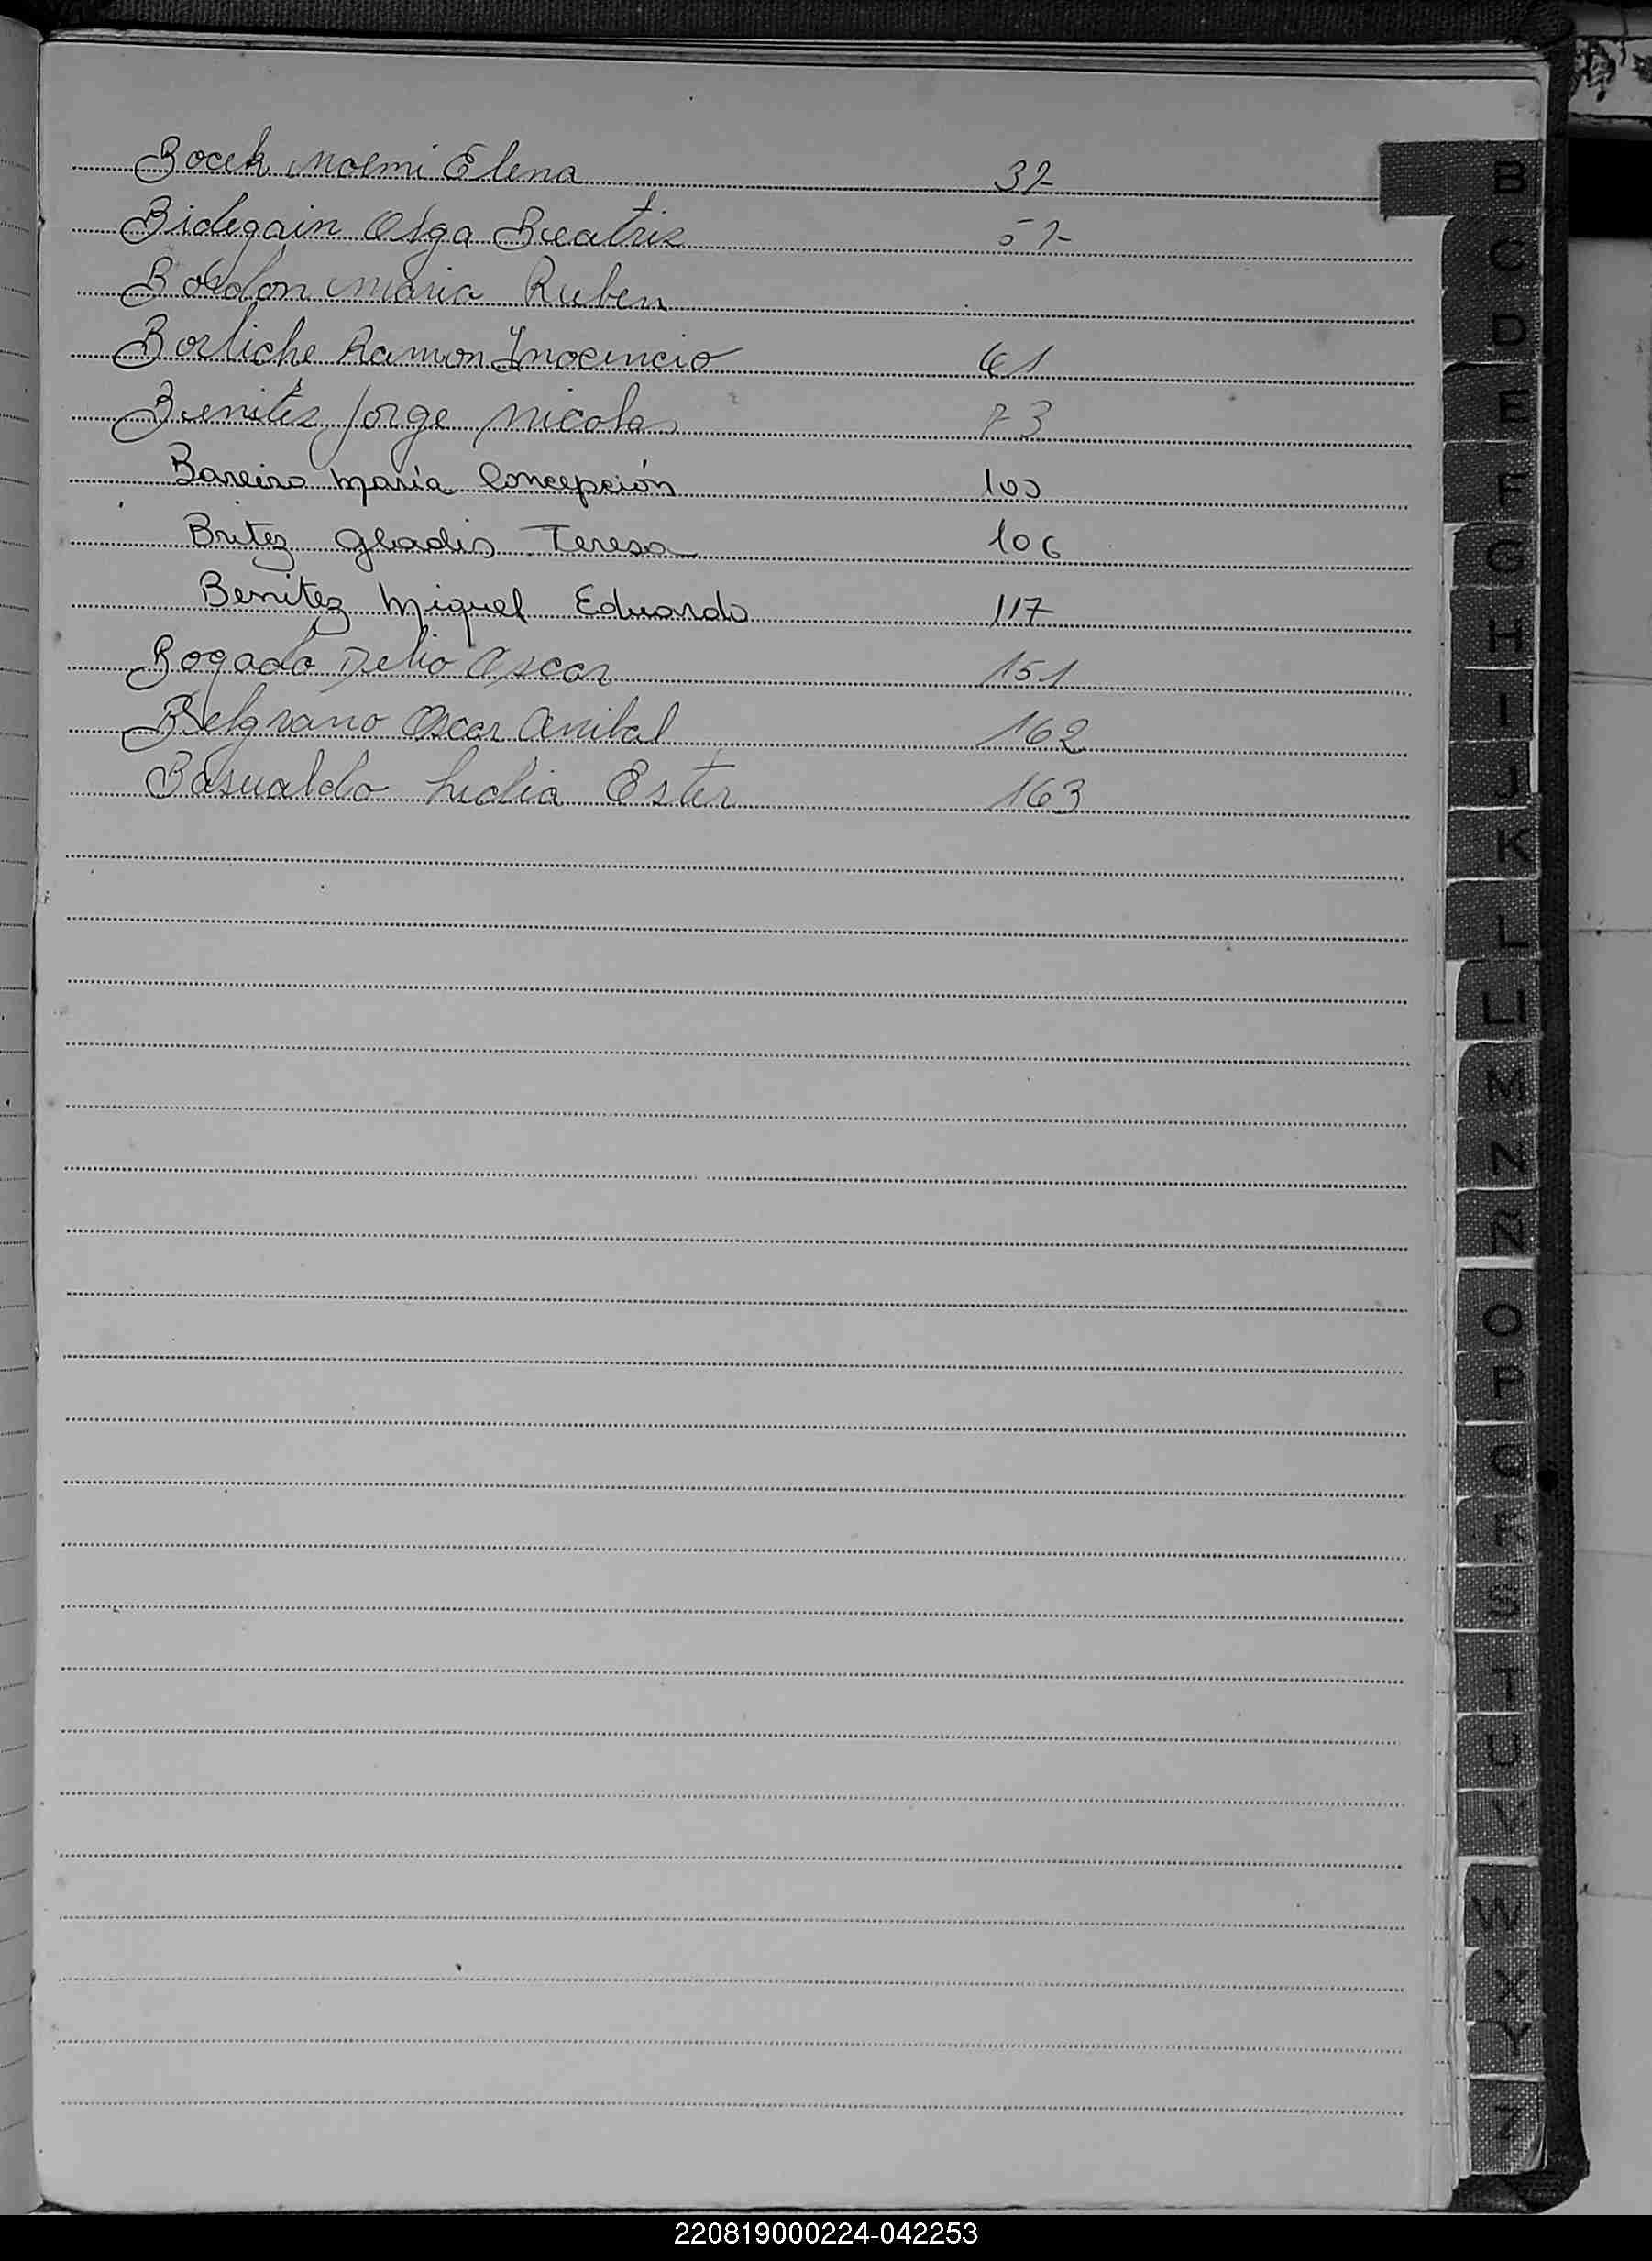 Bocek Noemi Elena 32
B
Bidegain Olga Beatris 52
C
Bordon Maria Ruben
D
Borliche Ramon Inocencio 61
Benites Jorge Nicolas 73
E
Bareiro María Concepción 103
F
Britez Gladis Teresa 106
G
Benitez Miguel Eduardo 117
H
Bogado Delio Oscar 151
I
Belgrano Oscar Anibal 162
Basualdo Lidia Ester 163
J
K
L
LL
M
N
Ñ
O
P
Q
R
S
T
U
V
W
X
Y
Z
220819000224-042253